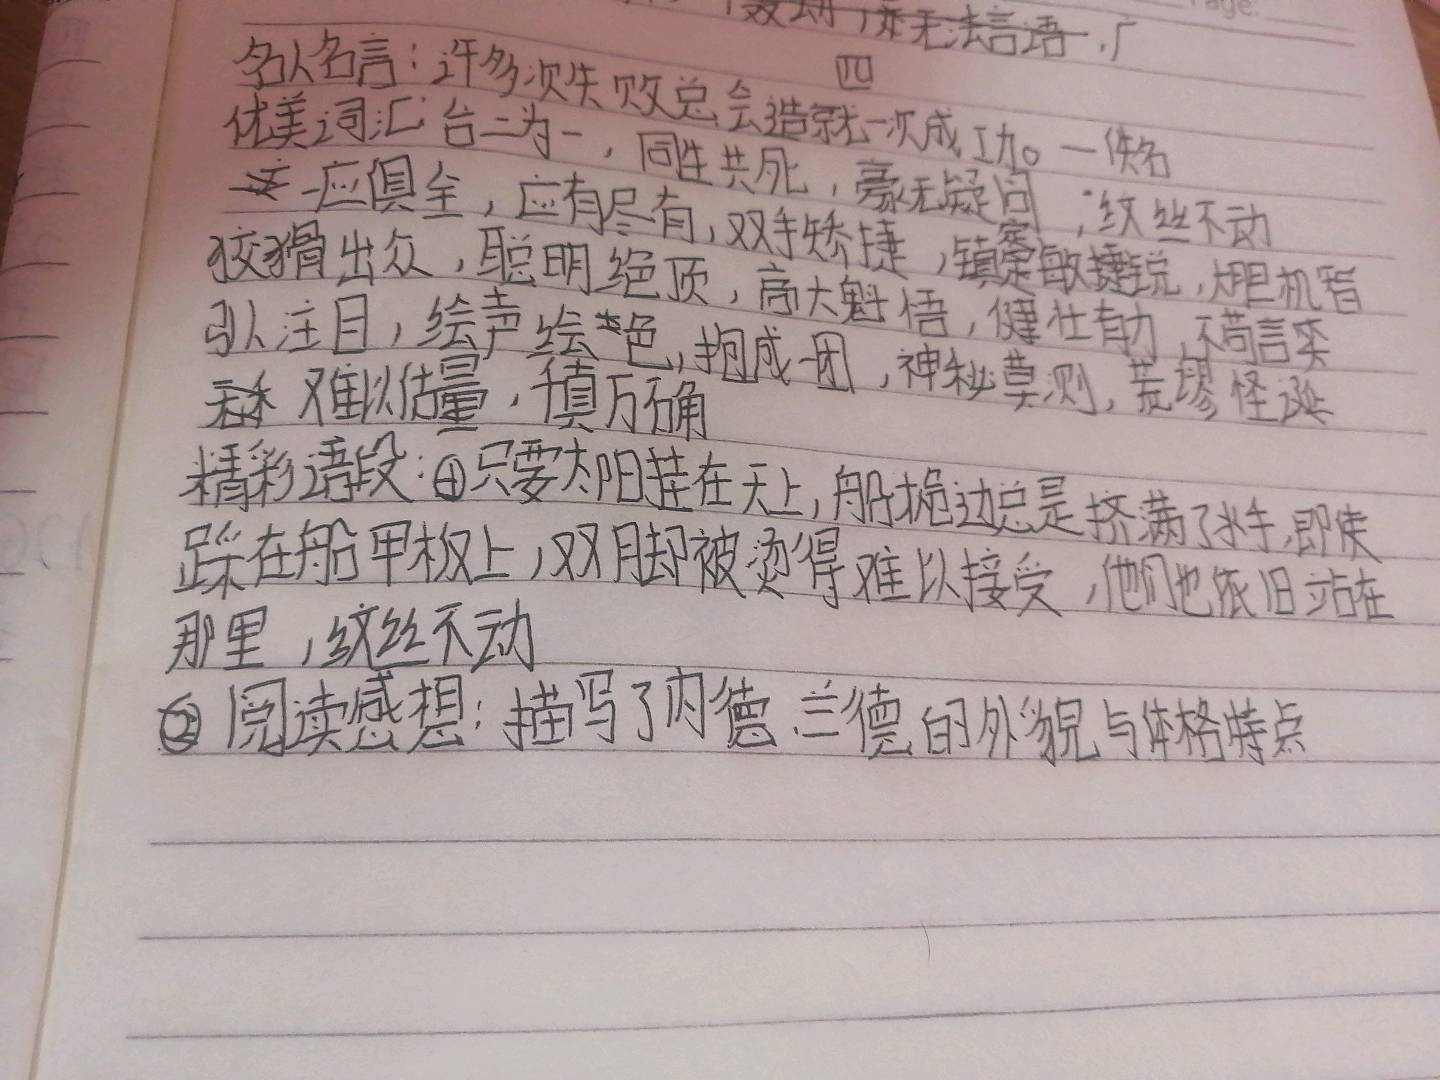 亦无法言语。
四
名人名言：许多次失败总会造就一次成功。一佚名
优美词汇：合二为一，同生共死，豪无疑问，纹丝不动
一应俱全，应有尽有，双手矫捷，镇定敏捷锐，大胆机智
狡猾出众，聪明绝顶，高大魁梧，健壮有力，不苟言笑
引人注目，绘声绘色，抱成一团，神秘莫测，荒缪怪诞
难以估量，千真万确
精彩语段：①只要太阳挂在天上，船桅边总是挤满了水手，即使
踩在船甲板上，双脚却被烫得难以接受，他们也依旧站在
那里，纹丝不动
②阅读感想：描写了内德.兰德的外貌与体格特点